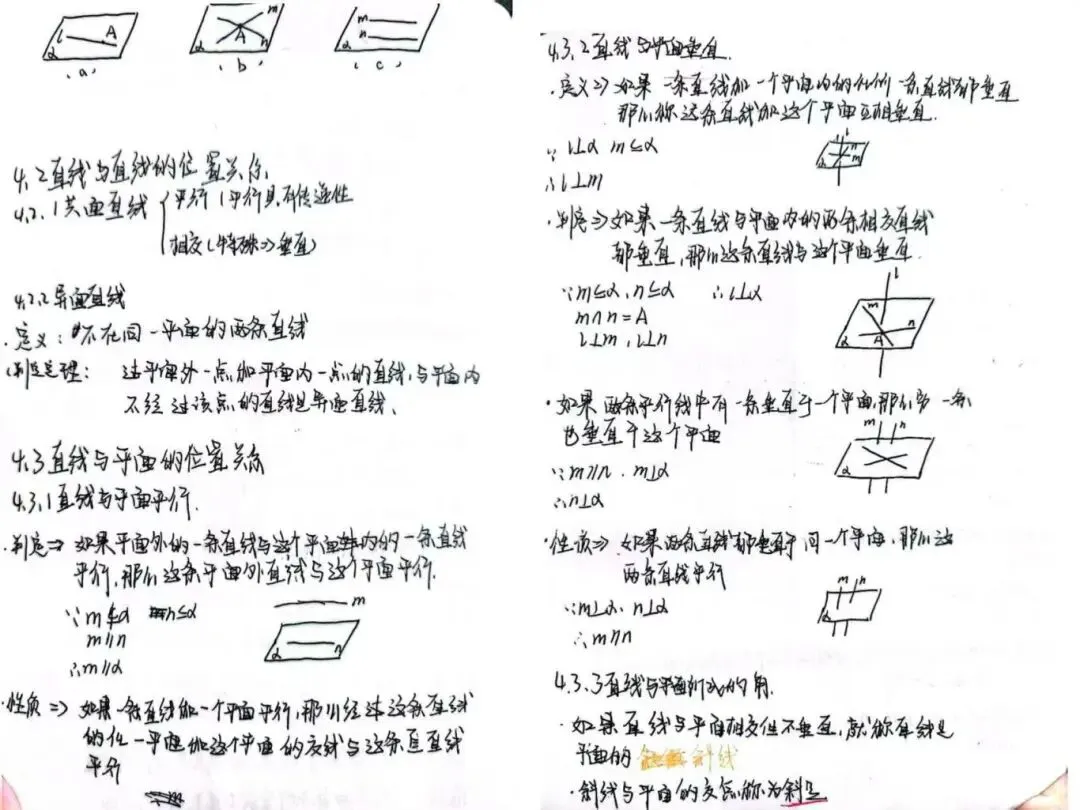 l A
α
(a)
m
A n
α
(b)
m
n
α
(c)
4.2 直线与直线的位置关系
4.2.1 共面直线 { 平行(平行具有传递性
相交(特殊⇒垂直)
4.2.2 异面直线
·定义:不在同一平面的两条直线
判定定理: 过平面外一点和平面内一点的直线,与平面内
不经过该点的直线是异面直线、
4.3 直线与平面的位置关系
4.3.1 直线与平面平行.
·判定⇒ 如果平面外的一条直线与这个平面内的一条直线
平行,那么这条平面外直线与这个平面平行.
∵m⊈α n⊆α
m∥n
∴m∥α
m
α n
·性质⇒ 如果一条直线和一个平面平行,那么经过这条直线
的任一平面和这个平面的交线与这条直线
平行
4.3.2 直线与平面垂直.
·定义⇒ 如果一条直线和一个平面内的任何一条直线都垂直
那么称这条直线和这个平面互相垂直.
∵ l⊥α m⊆α
∴l⊥m
l
n
α m
·判定⇒如果一条直线与平面内的两条相交直线
都垂直,那么这条直线与这个平面垂直.
∵m⊆α,n⊆α ∴l⊥α
m∩n=A
l⊥m,l⊥n
l
m
n
α A
·如果两条平行线中有一条垂直于一个平面,那么另一条
也垂直于这个平面
∵m∥n.m⊥α
∴n⊥α
m n
α
·性质⇒ 如果两条直线都垂直于同一个平面,那么这
两条直线平行
∵m⊥α.n⊥α
∴m∥n
m n
α
4.3.3 直线与平面所成的角.
·如果直线与平面相交但不垂直,就称直线是
平面的 斜线
·斜线与平面的交点称为斜足